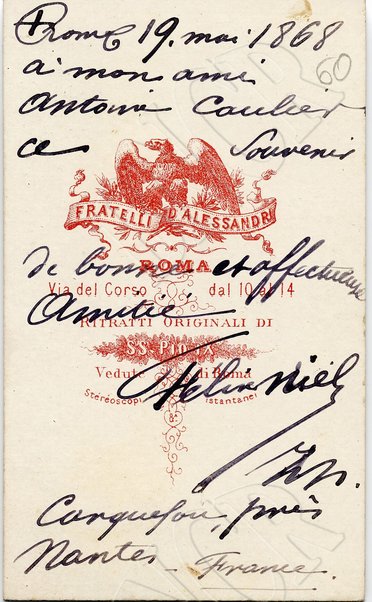 Rome 19. mai 1868
60
à mon ami
Antoine Caulier
ce Souvenir
FRATELLI D'ALESSANDRI
ROMA
de bonne et affectueuse
Via del Corso dal 10 al 14
Amitié
RITRATTI ORIGINALI DI
SS. PIO IX
Vedute di Roma
Félix Niel
Stereoscopi istantanei
&c
Carquefou, près
Nantes France.